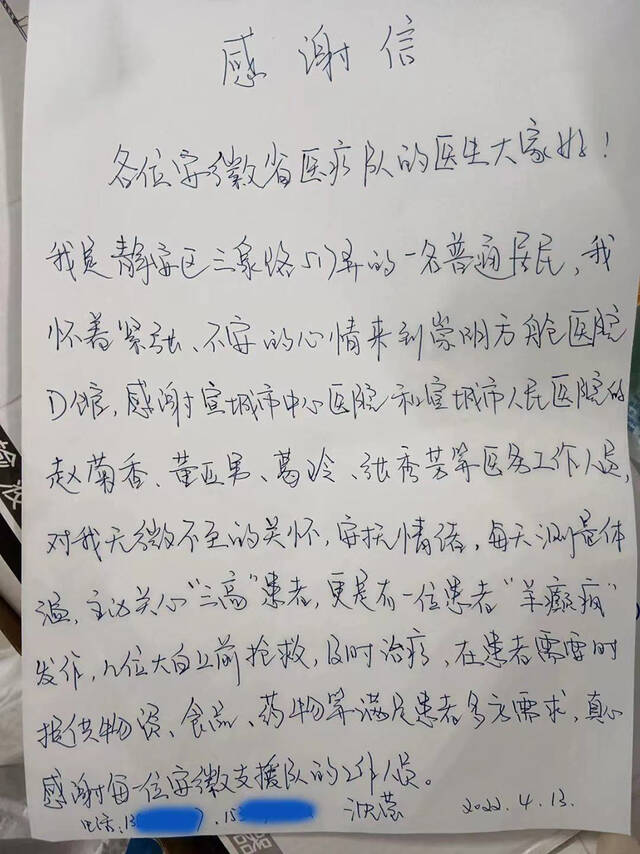 感谢信
各位安徽省医疗队的医生大家好!
我是静安区三泉路517弄的一名普通居民,我
怀着紧张、不安的心情来到崇明方舱医院
D馆,感谢宣城市中心医院和宣城市人民医院的
赵菊香、董亚男、葛玲、张秀芳等医务工作人员,
对我无微不至的关怀,安抚情绪,每天测量体
温,主动关心“三高”患者,更是有一位患者“羊癫疯”
发作,几位大白上前抢救,及时治疗,在患者需要时
提供物资、食品、药物等满足患者多方需求,真心
感谢每一位安徽支援队的工作人员。
电话:13 、15 沈 2022.4.13.